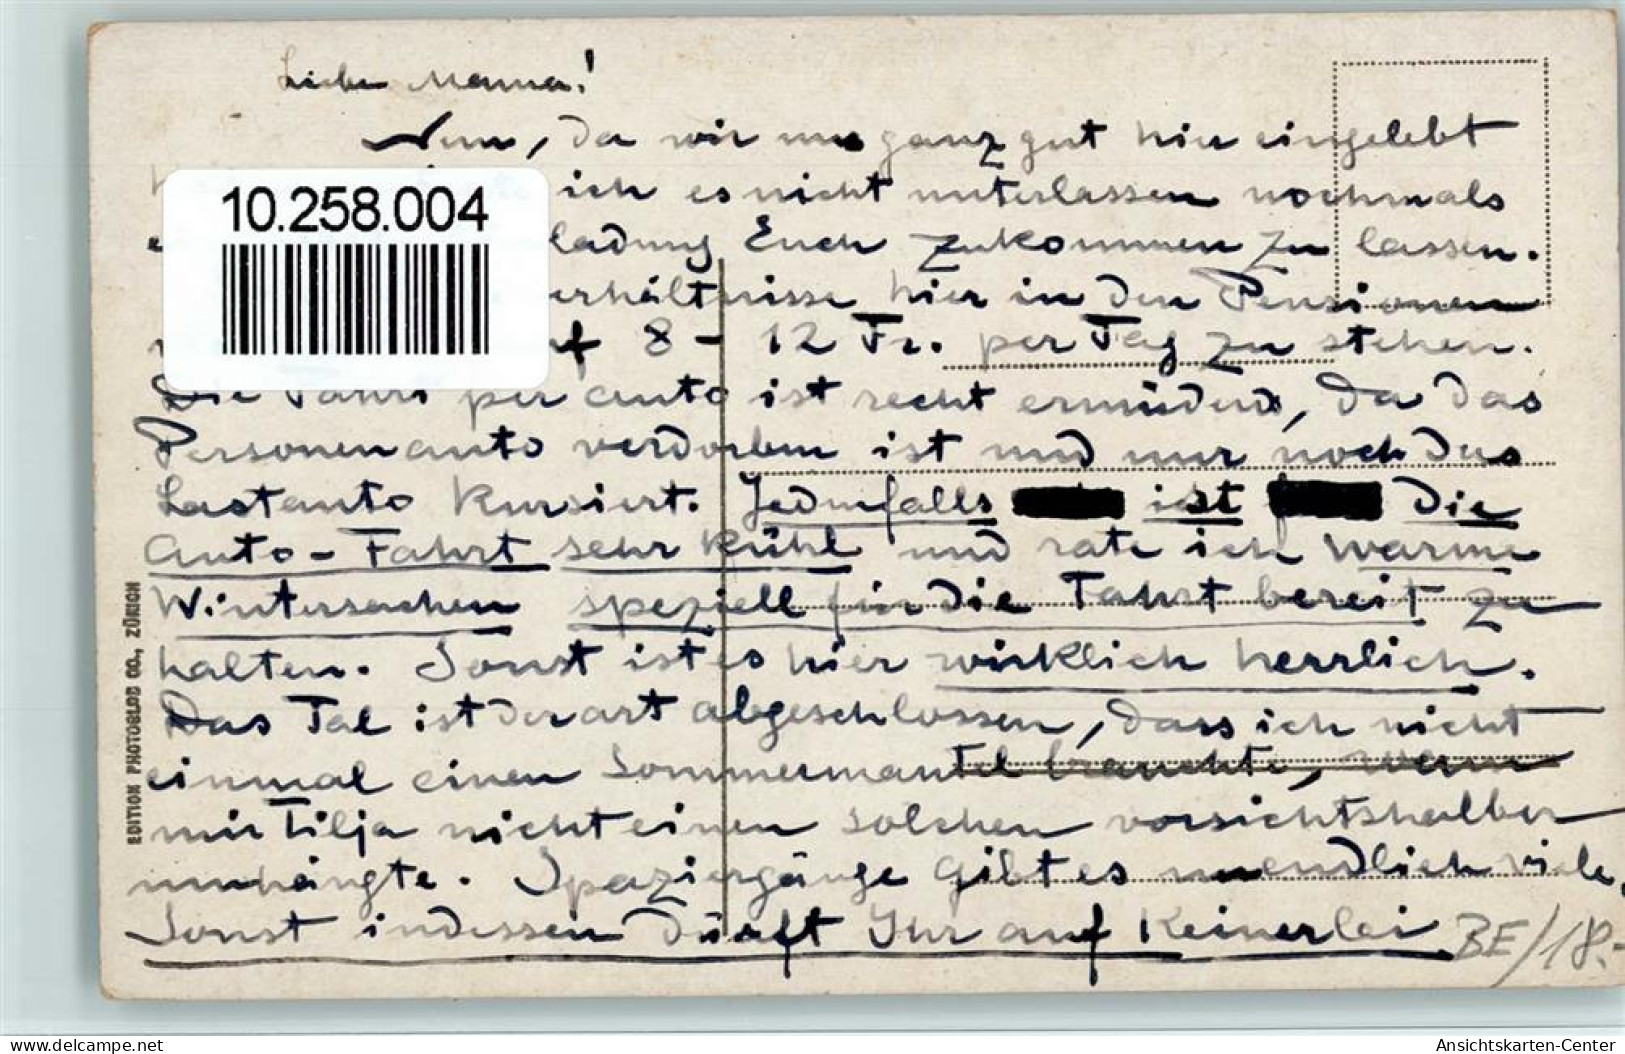 Liebe Mama!
Nun, da wir uns ganz gut hier eingelebt
10.258.004
ich es nicht unterlassen nochmals
ladung Euch zukommen zu lassen.
erhältnisse hier in den Pensionen
auf 8 - 12 Fr. per Tag zu stehen.
Die Fahrt per Auto ist recht ermüdend, da das
Personenauto verdorben ist und nur noch das
Lastauto kursiert. Jedenfalls ist die
Auto-Fahrt sehr kühl und rate ich warme
Wintersachen speziell für die Fahrt bereit zu
halten. Sonst ist es hier wirklich herrlich.
Das Tal ist derart abgeschlossen, dass ich nicht
einmal einen Sommermantel brauchte, wenn
mir Tilja nicht einen solchen vorsichtshalber
umhängte. Spaziergänge gibt es unendlich viele.
Sonst indessen dürft Ihr auf keinerlei
BE/18.-
EDITION PHOTOGLOB CO., ZÜRICH
www.delcampe.net
Ansichtskarten-Center